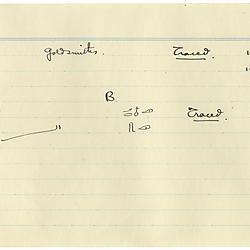 goldsmiths. Traced. "
"
B.
Traced.
"